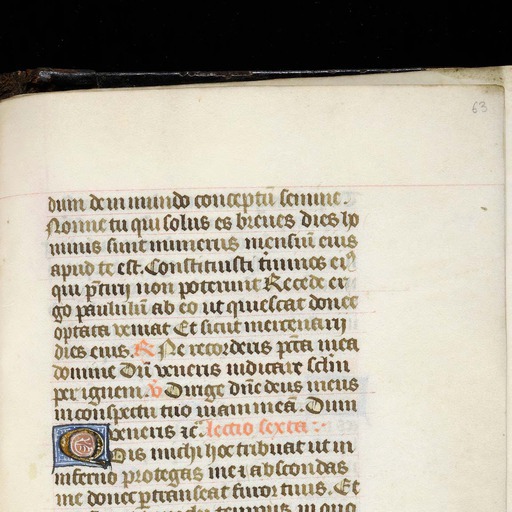 63
dum de inmundo conceptū semine.
Nonne tu qui solus es breues dies ho
minis sunt numerus mensiū eius
apud te est. Constituisti t̄minos eiꝰ
qui p̄tiry non poterunt Recede er
go paululū ab eo ut quiescat donec
optata veniat Et sicut mercenarij
dies eius. ꝶ Ne recorderis pcc̄ta mea
domine Dū veneris iudicare sclm̄
per ignem. ℣ Dirige dn̄e deus meus
in conspectu tuo uiam meā. Dum
veneris ⁊c̄. lectio sexta
Quis michi hoc tribuat ut in
inferno protegas me ⁊ abscondas
me donec ꝑtranseat furor tuus. Et
tempus in quo